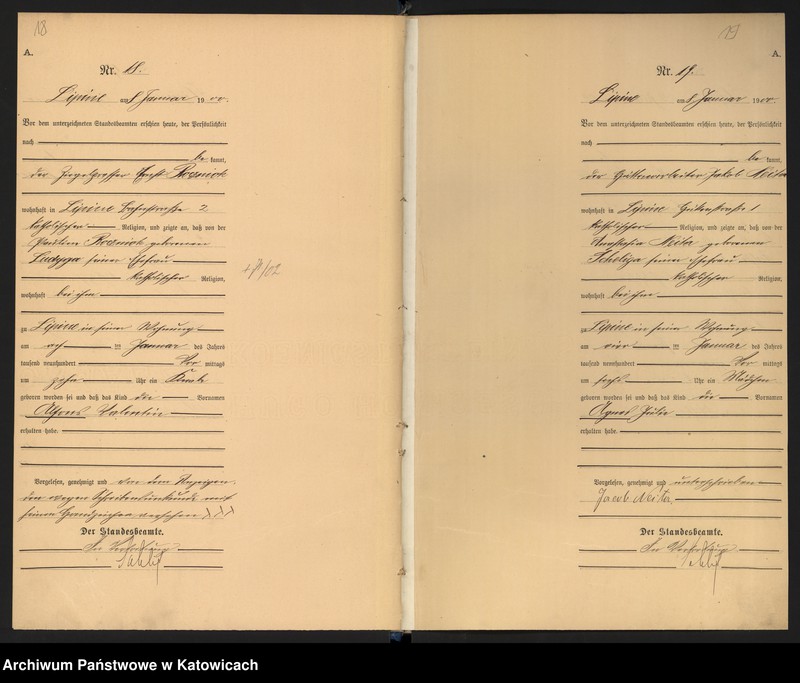 18
A.
Nr. 18.
Lipine am 8 Januar 1900.
Vor dem unterzeichneten Standesbeamten erschien heute, der Persönlichkeit
nach
be kannt,
der Ernst Rosniok
wohnhaft in Lipine 2
katholischer Religion, und zeigte an, daß von der
Pauline Rosniok geborenen
Ludyga seiner Ehefrau
katholischer Religion,
wohnhaft bei ihm
zu Lipine in seiner Wohnung
am Januar des Jahres
tausend neunhundert Vor mittags
um zehn Uhr ein Knabe
geboren worden sei und daß das Kind die Vornamen
Alfons Valentin
erhalten habe.
Vorgelesen, genehmigt und von dem Anzeigen-
den wegen Schreibensunkunde mit
seinem Handzeichen versehen XXX
Der Standesbeamte.
In Vertretung
19
A.
Nr. 19.
Lipine am 8 Januar 1900.
Vor dem unterzeichneten Standesbeamten erschien heute, der Persönlichkeit
nach
be kannt,
der Hüttenarbeiter Jakob
wohnhaft in Lipine Hüttenstraße 1
katholischer Religion, und zeigte an, daß von der
Anastasia geborenen
Scheliga seiner Ehefrau
katholischer Religion,
wohnhaft bei ihm
zu Lipine in seiner Wohnung
am vier Januar des Jahres
tausend neunhundert Vor mittags
um sechs Uhr ein Mädchen
geboren worden sei und daß das Kind die Vornamen
Agnes Julie
erhalten habe.
Vorgelesen, genehmigt und unterschrieben
Jacob
Der Standesbeamte.
In Vertretung
Archiwum Państwowe w Katowicach